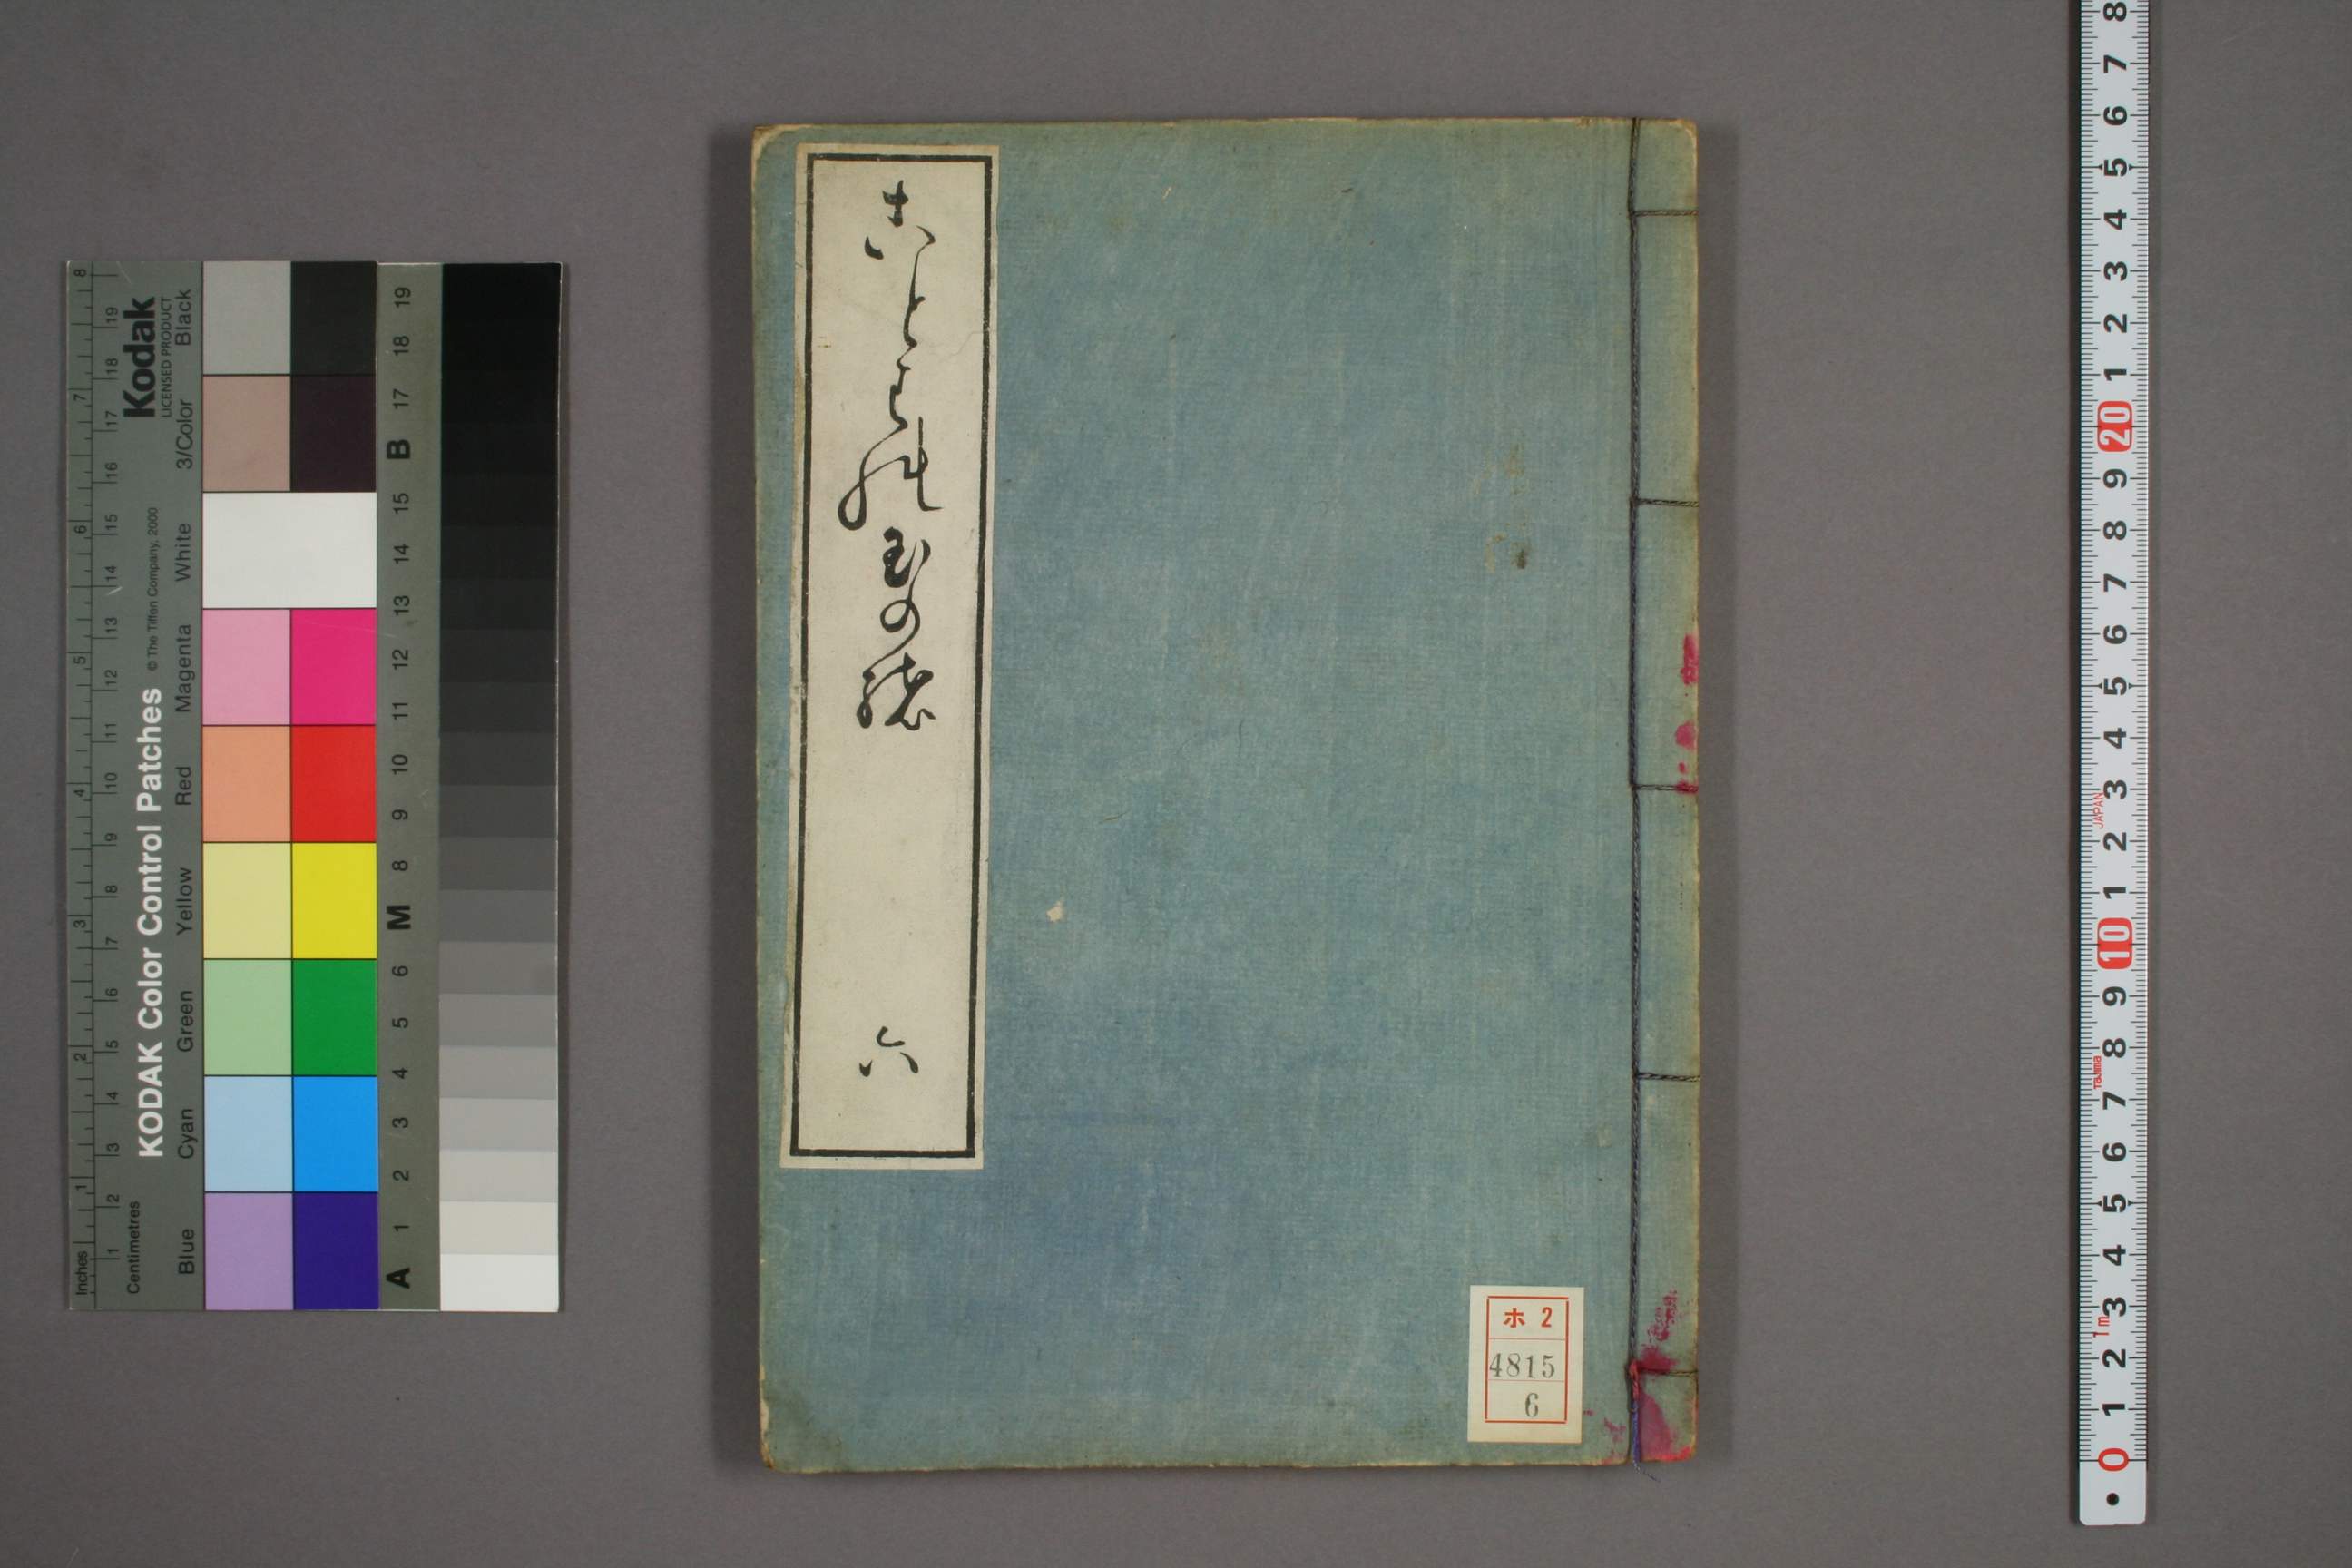 古と者能玉の緒
六
ホ 2
4815
6
KODAK Color Control Patches
Kodak
LICENSED PRODUCT
© The Tiffen Company, 2000
Inches
1 2 3 4 5 6 7 8
Centimetres
1 2 3 4 5 6 7 8 9 10 11 12 13 14 15 16 17 18 19
Blue Cyan Green Yellow Red Magenta White 3/Color Black
A 1 2 3 4 5 6 M 8 9 10 11 12 13 14 15 B 17 18 19
8 7 6 5 4 3 2 1 20 9 8 7 6 5 4 3 2 1 10 9 8 7 6 5 4 3 2 1 0
JAPAN
Tajima
1m